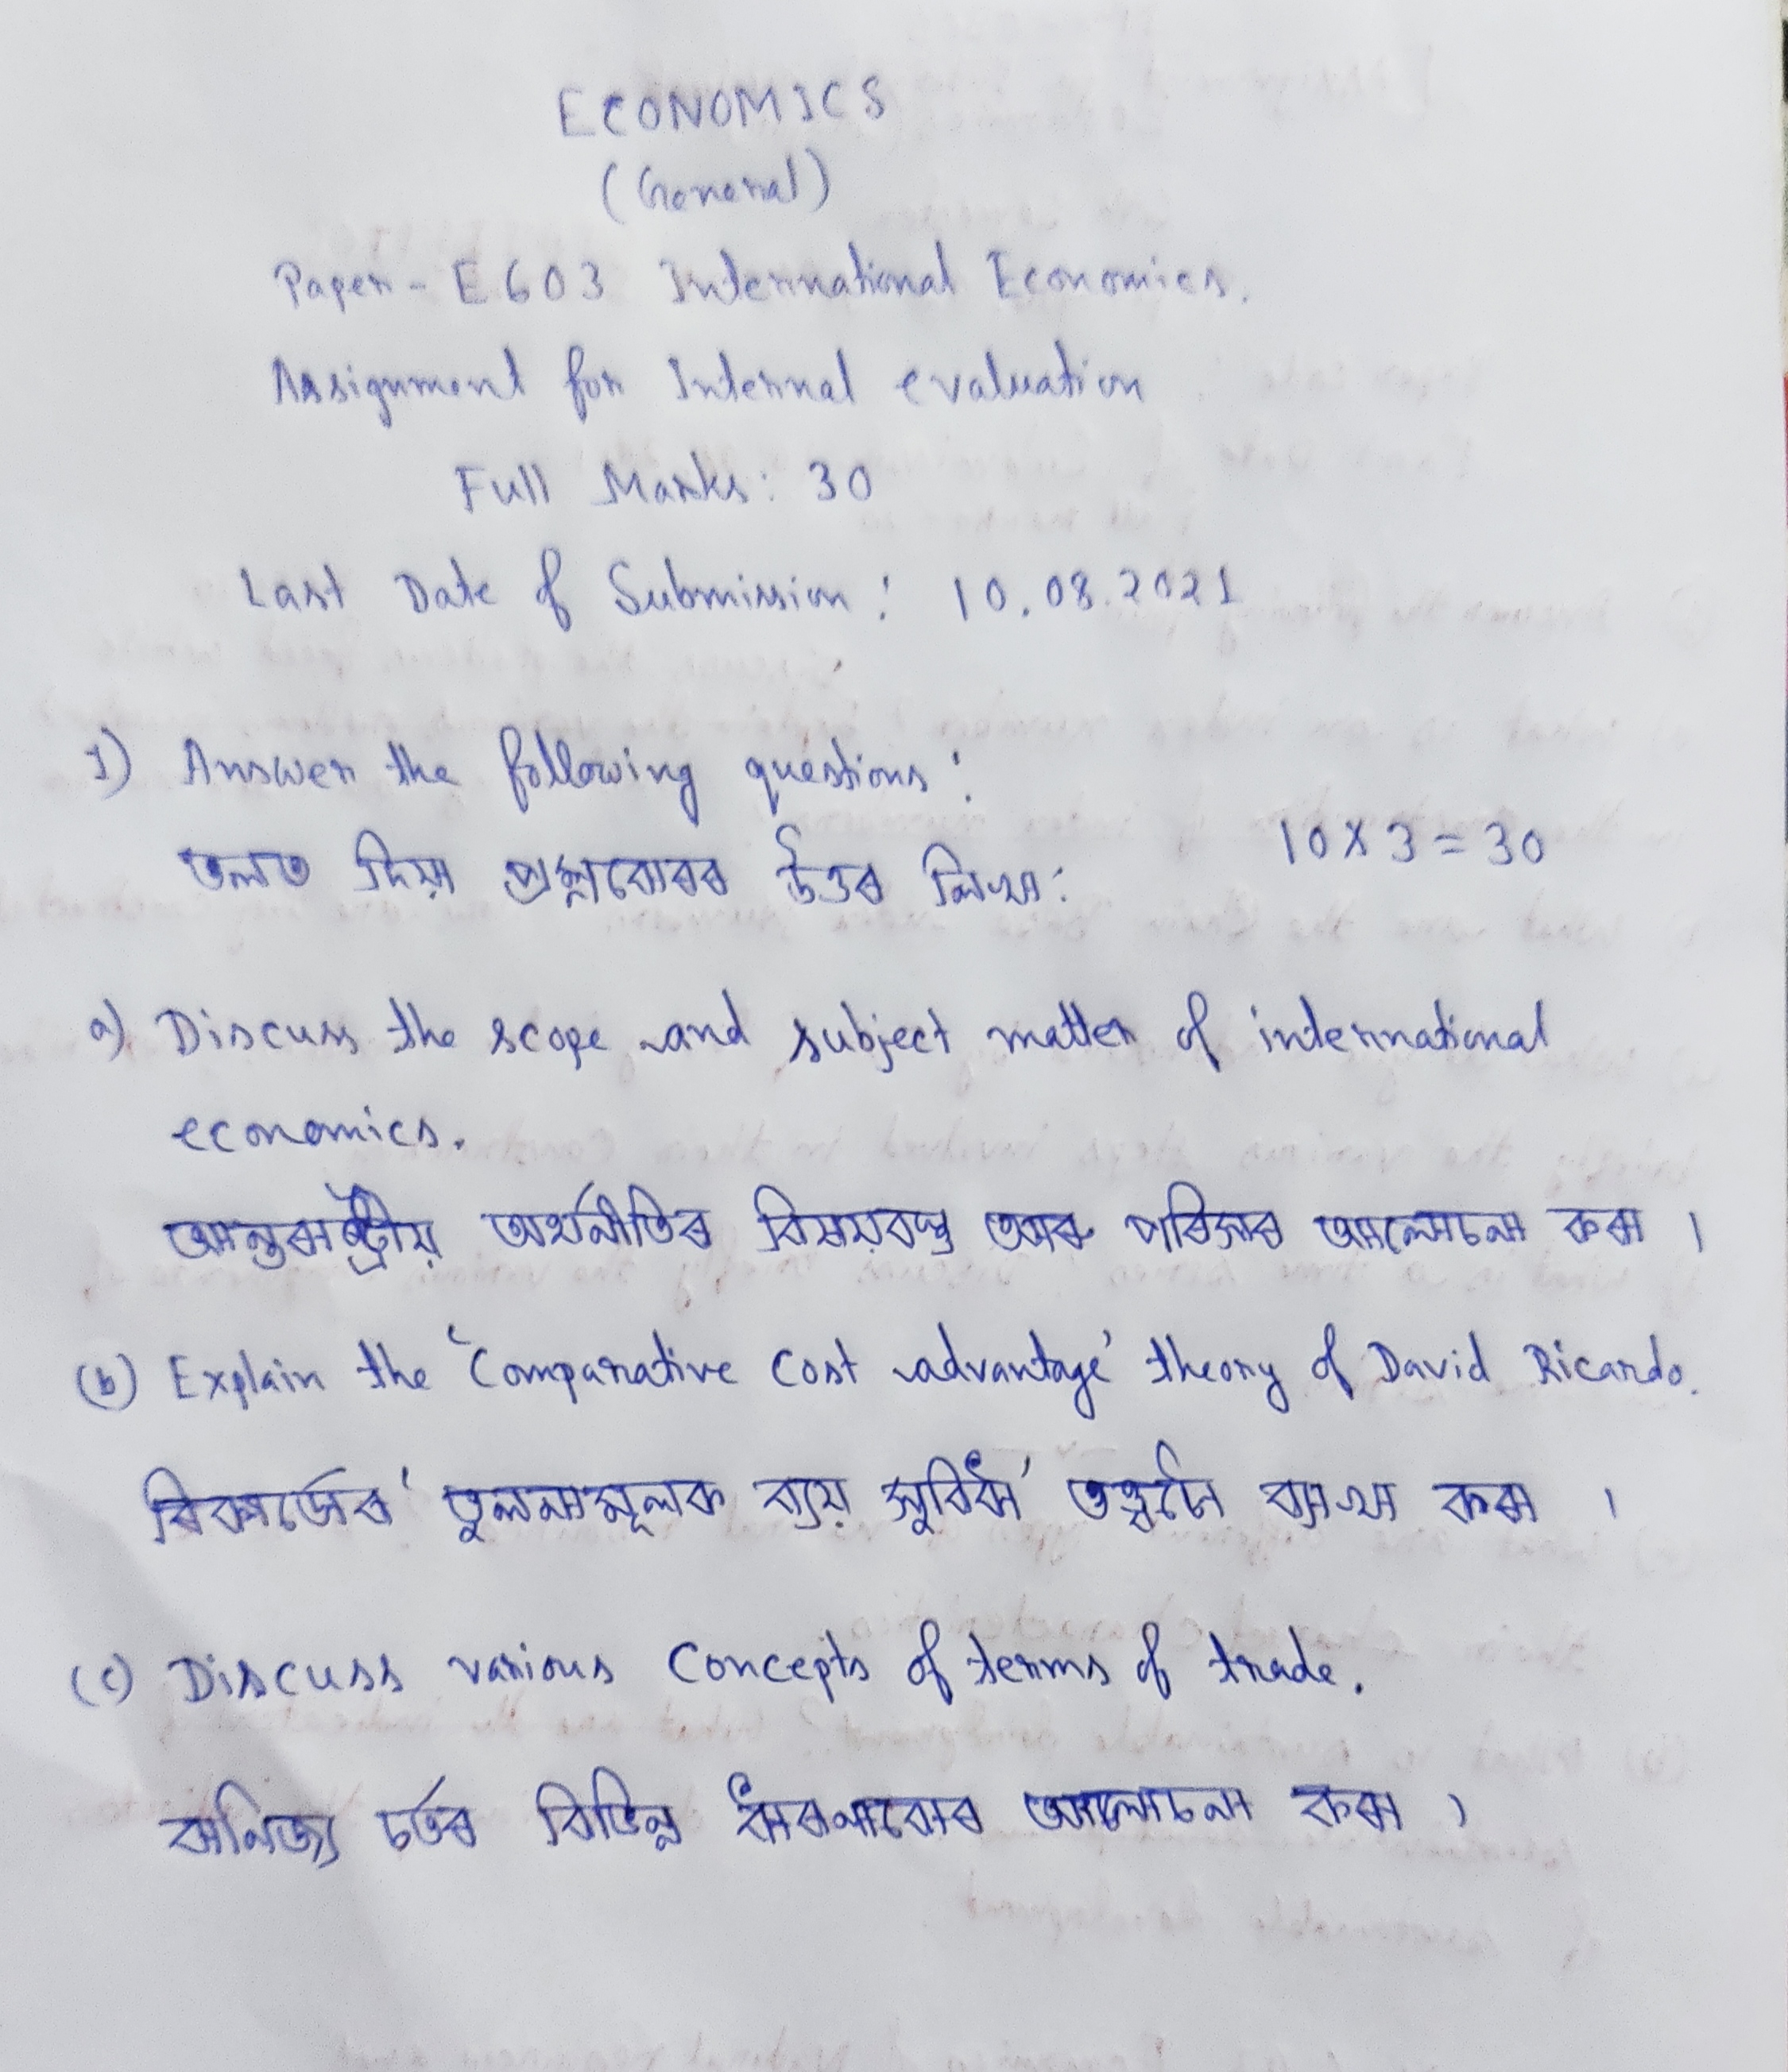 ECONOMICS
(General)
Paper - E 603 International Economics.
Assignment for Internal evaluation
Full Marks: 30
Last Date of Submission: 10.08.2021
1) Answer the following questions:
তলত দিয়া প্ৰশ্নবোৰৰ উত্তৰ লিখা:
10 X 3 = 30
a) Discuss the scope and subject matter of international
economics.
আন্তৰাষ্ট্ৰীয় অৰ্থনীতিৰ বিষয়বস্তু আৰু পৰিসৰ আলোচনা কৰা ।
(b) Explain the 'Comparative Cost advantage' theory of David Ricardo.
ৰিকাৰ্ডোৰ 'তুলনামূলক ব্যয় সুবিধা' তত্ত্বটো ব্যাখ্যা কৰা ।
(c) Discuss various Concepts of terms of trade.
বানিজ্য চৰ্তৰ বিভিন্ন ধাৰণাবোৰ আলোচনা কৰা ।